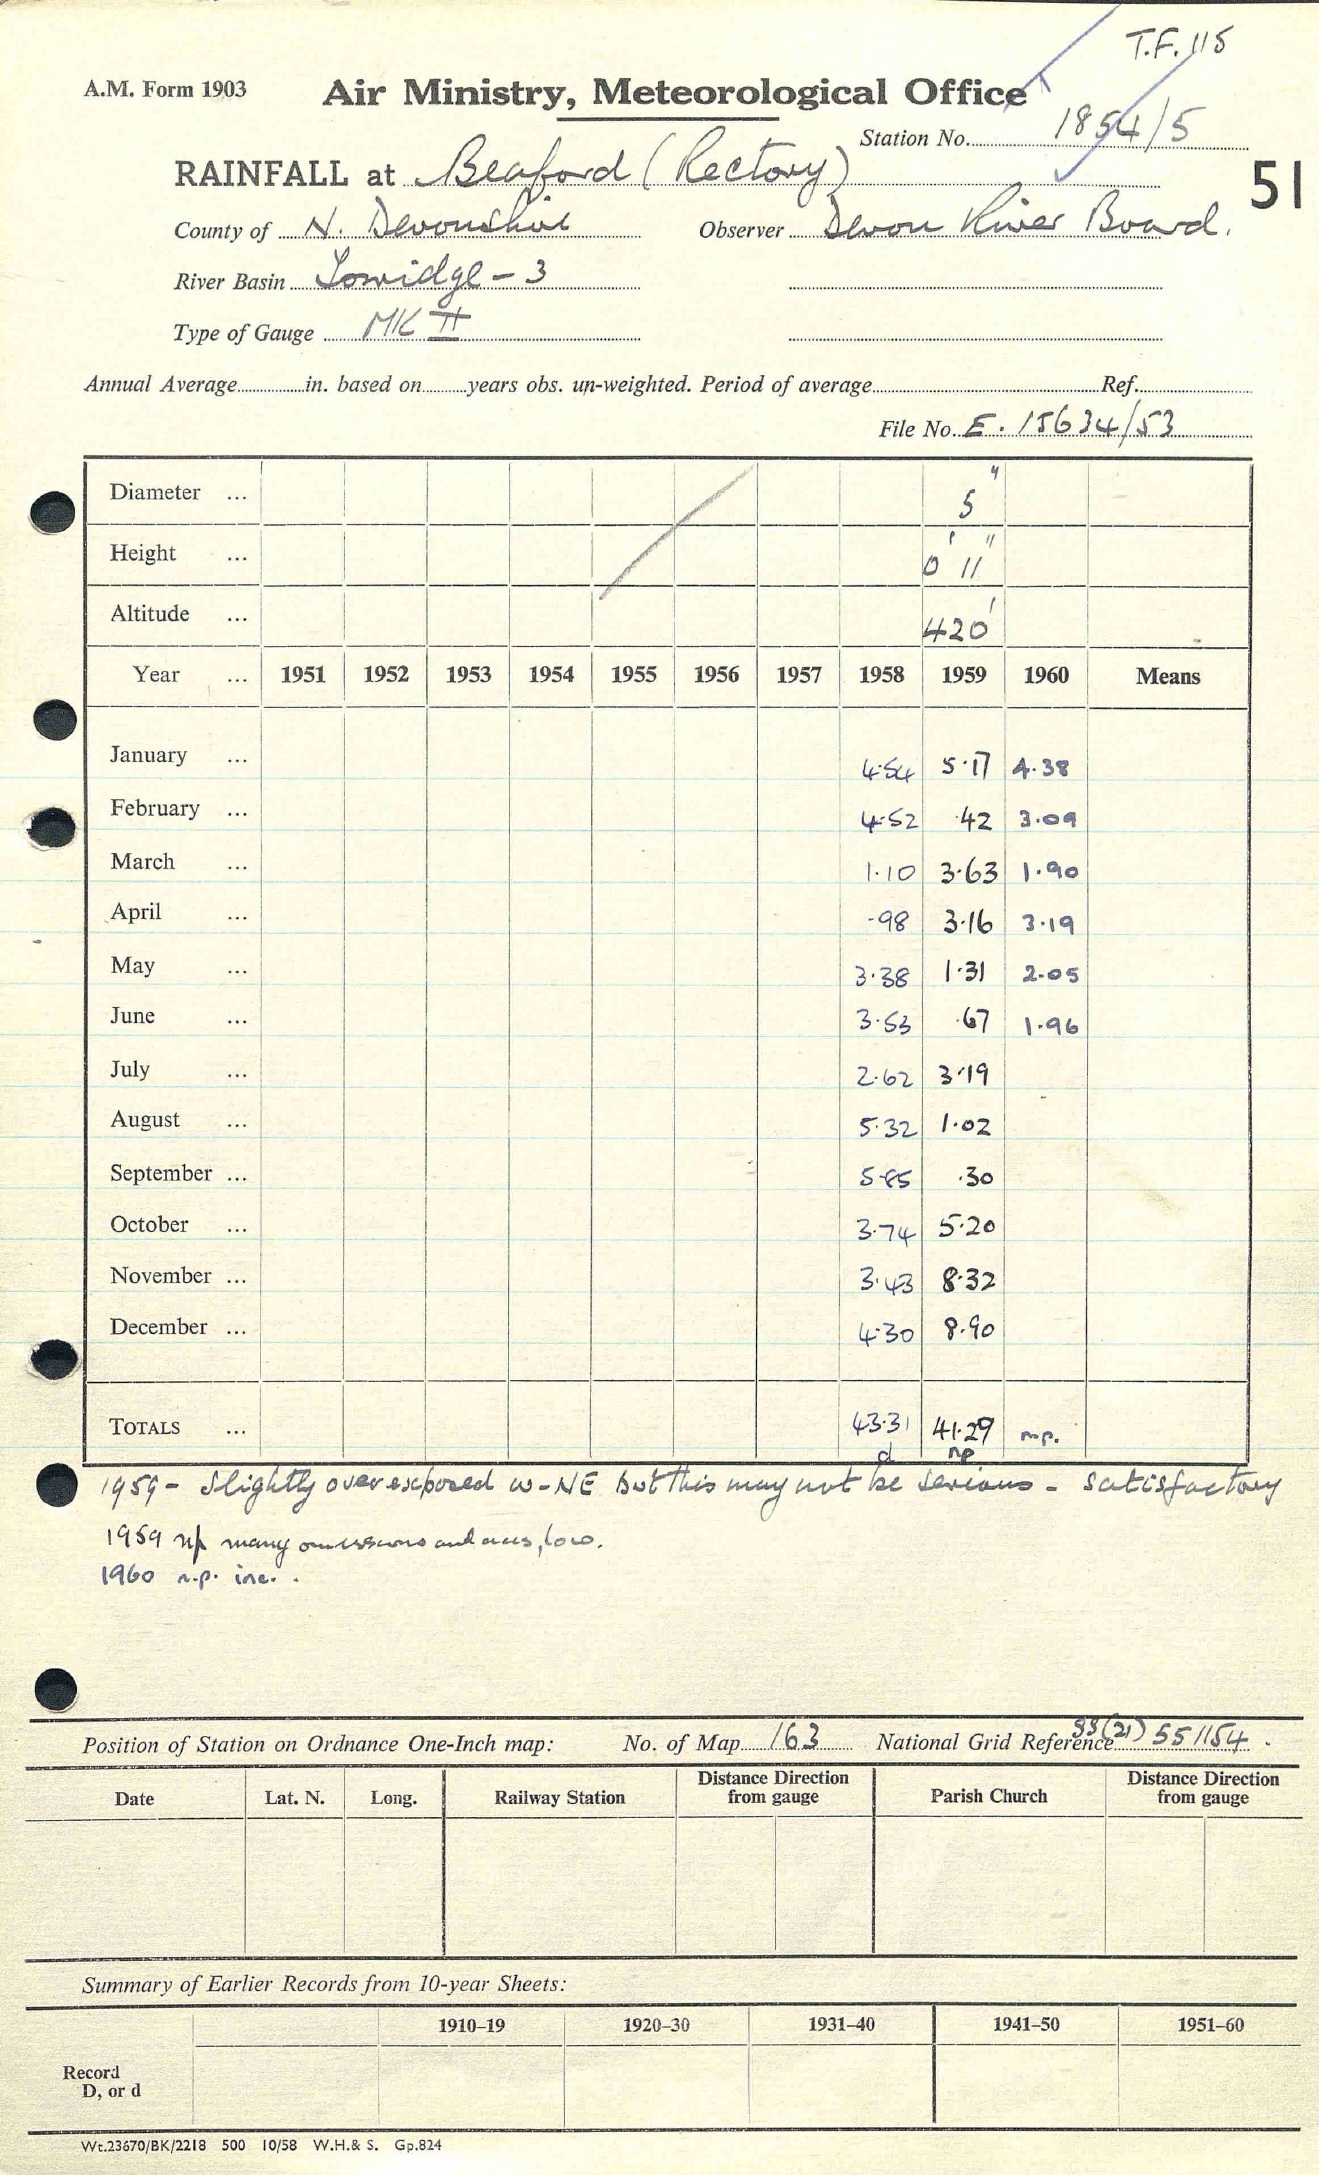 T.F. 115
A.M. Form 1903 Air Ministry, Meteorological Office
Station No. 1854/5
RAINFALL at Beaford (Rectory) 51
County of N. Devonshire Observer Devon River Board.
River Basin Torridge - 3
Type of Gauge MK II
Annual Average in. based on years obs. un-weighted. Period of average Ref.
File No. E. 15634/53
Diameter ... 5"
Height ... 0' 11"
Altitude ... 420'
Year ... 1951 1952 1953 1954 1955 1956 1957 1958 1959 1960 Means
January ... 4.54 5.17 4.38
February ... 4.52 .42 3.09
March ... 1.10 3.63 1.90
April ... .98 3.16 3.19
May ... 3.38 1.31 2.05
June ... 3.53 .67 1.96
July ... 2.62 3.19
August ... 5.32 1.02
September ... 5.85 .30
October ... 3.74 5.20
November ... 3.43 8.32
December ... 4.30 8.90
TOTALS ... 43.31 41.29 n.p.
d np
1959 - Slightly over exposed W-NE but this may not be serious - satisfactory
1959 np many omissions and accs, low.
1960 n.p. inc. .
Position of Station on Ordnance One-Inch map: No. of Map 163 National Grid Reference SS(21) 551154.
Date Lat. N. Long. Railway Station Distance Direction from gauge Parish Church Distance Direction from gauge
Summary of Earlier Records from 10-year Sheets:
1910–19 1920–30 1931–40 1941–50 1951–60
Record
D, or d
Wt.23670/BK/2218 500 10/58 W.H.& S. Gp.824